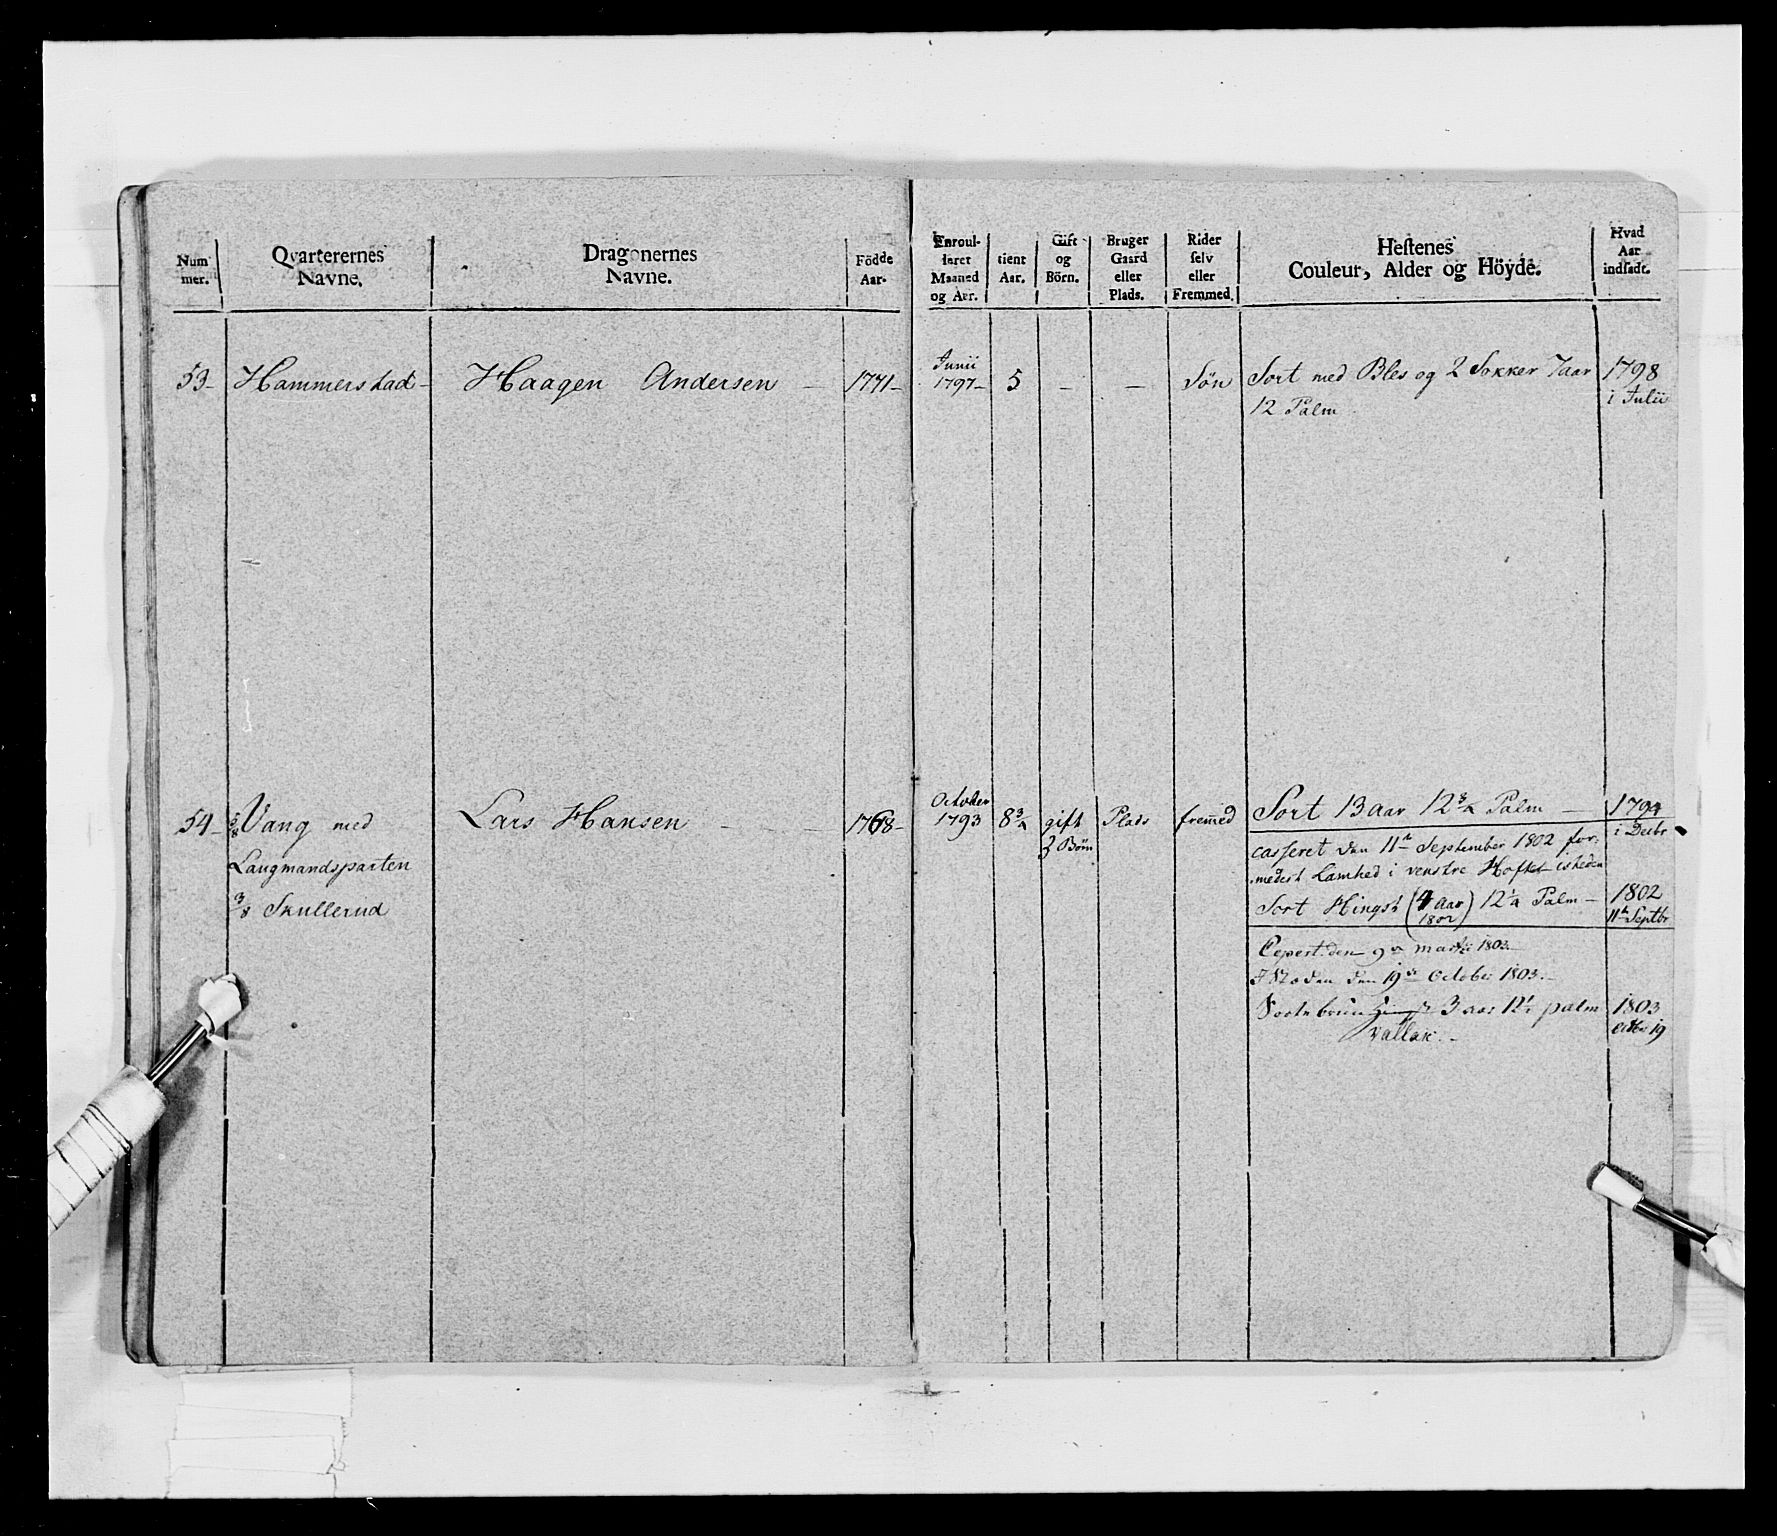 Num
mer.
Qvarterernes
Navne.
Dragonernes
Navne.
Födde
Aar.
Enroul-
leret
Maaned
og Aar.
tient
Aar.
Gift
og
Börn.
Bruger
Gaard
eller
Plads.
Rider
selv
eller
Fremmed.
Hestenes
Couleur, Alder og Höyde.
Hvad
Aar
indsadt.
53 -
Hammerstad -
Haagen Andersen -
1771 -
Junii
1797 -
5
-
-
Søn
Sort med Bles og 2 Sokker 7aar
12 Palm
1798
i Julii
54 -
5/8 Vang med
Laugmandsparten
3/8 Skullerud
Lars Hansen - - -
1768 -
October
1793
8 3/4
gift
3 Børn
Plads
fremmed
Sort 13 aar 12 3/4 Palm -
1794
i Decbr
casseret den 11te September 1802 for-
medest Lamhed i venstre Hofte isteden
Sort Hingst (4 Aar 1802) 12 1/4 Palm -
1802
11te Septbr
Creperet den 9de martii 1803.
I Steden den 19de October 1803. -
Sortebrun 3 aar palm
Vallak. -
1803
19